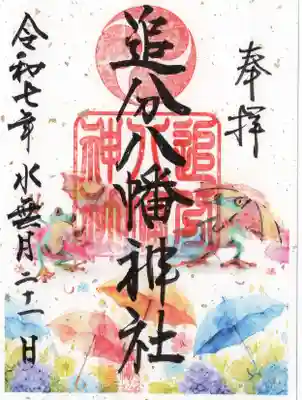 奉拝
追分八幡神社
追分八幡神社
令和七年水無月二十一日